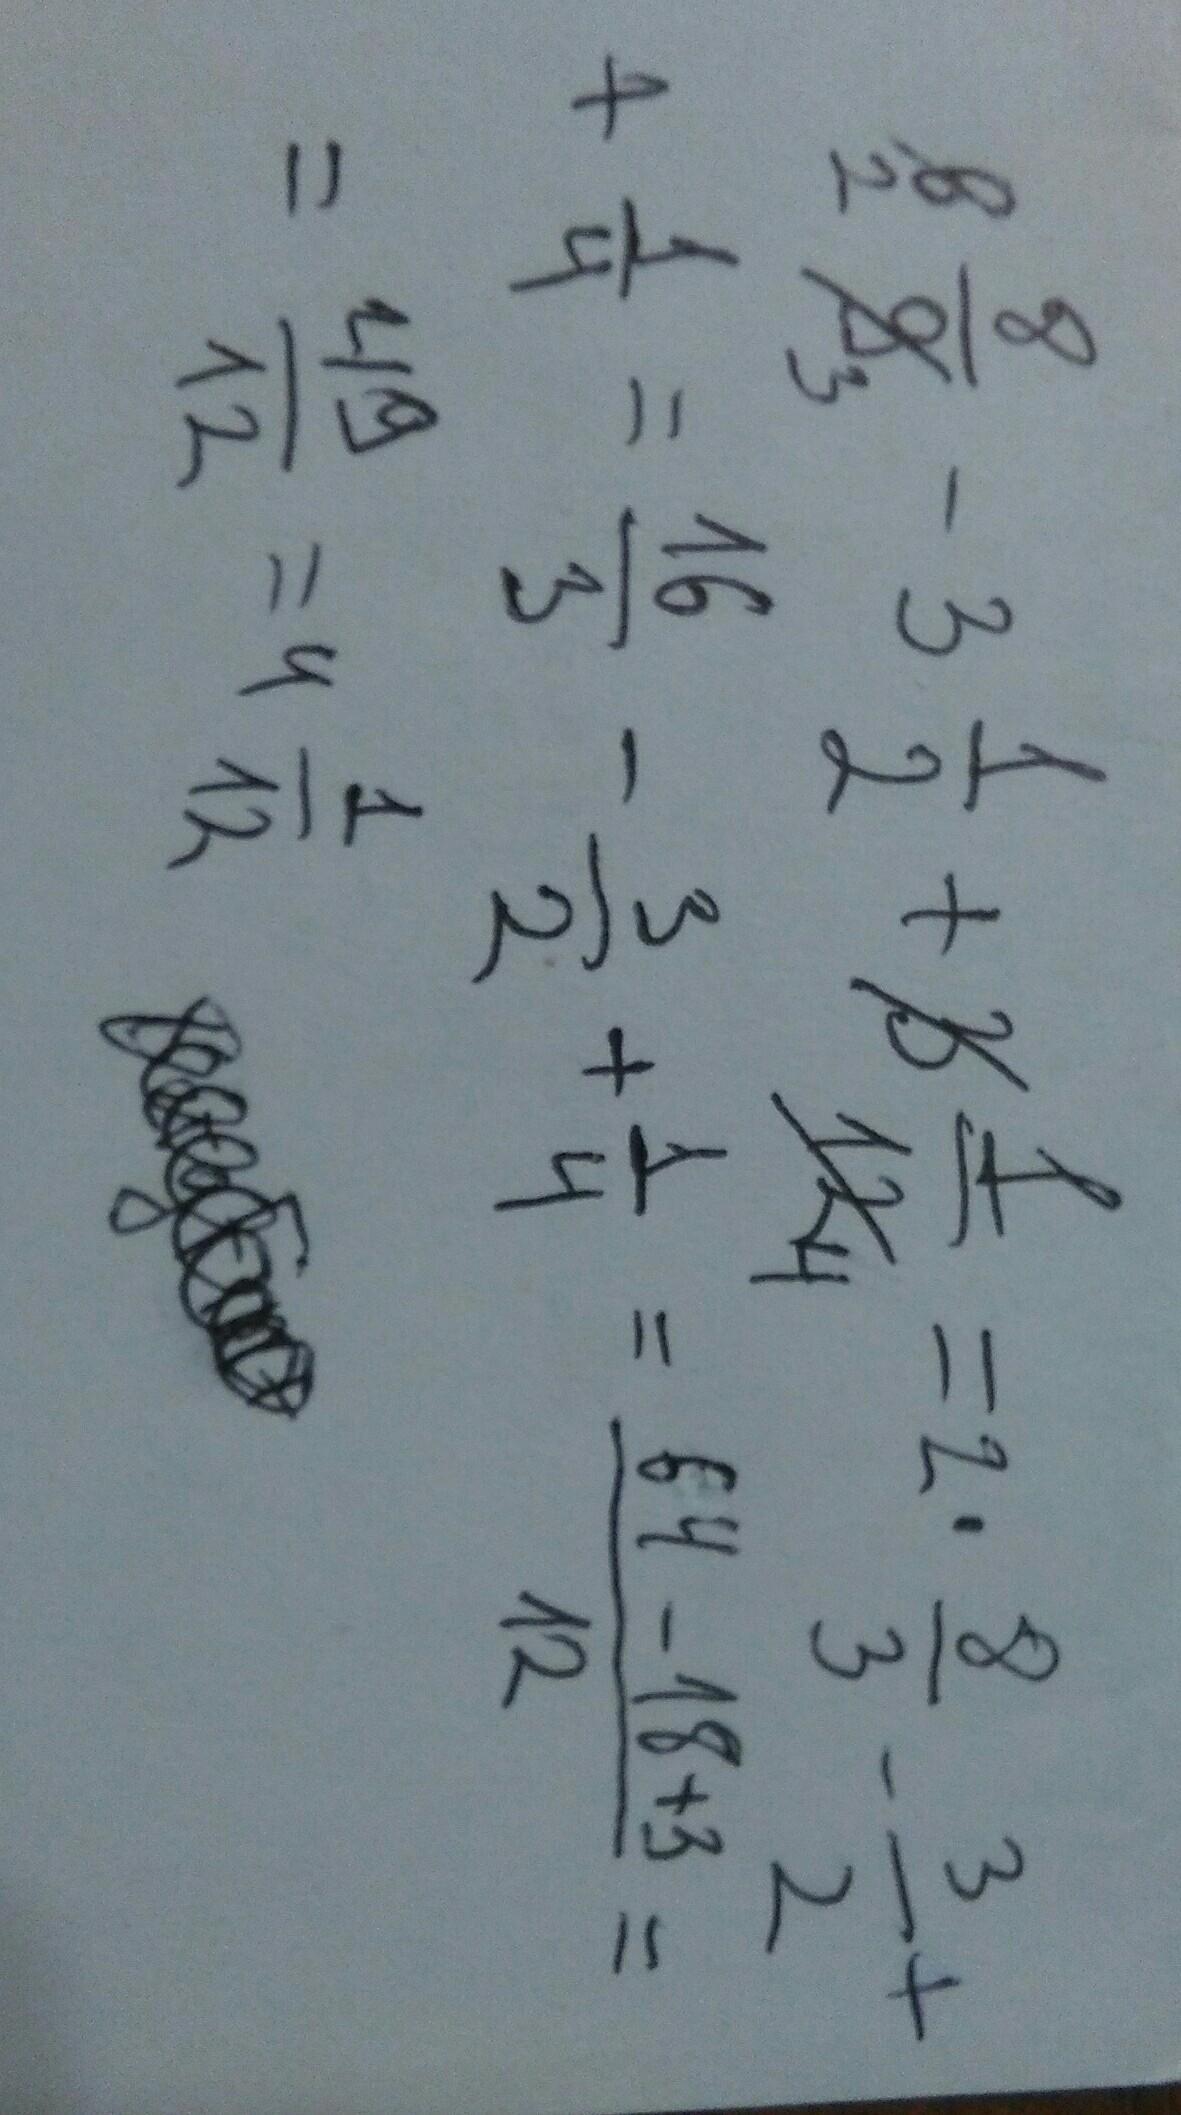 6 2 8/9 3 - 3 1/2 + 3 1/12 4 = 2 · 8/3 - 3/2 +
+ 1/4 = 16/3 - 3/2 + 1/4 = 64 - 18 + 3/12 =
= 49/12 = 4 1/12